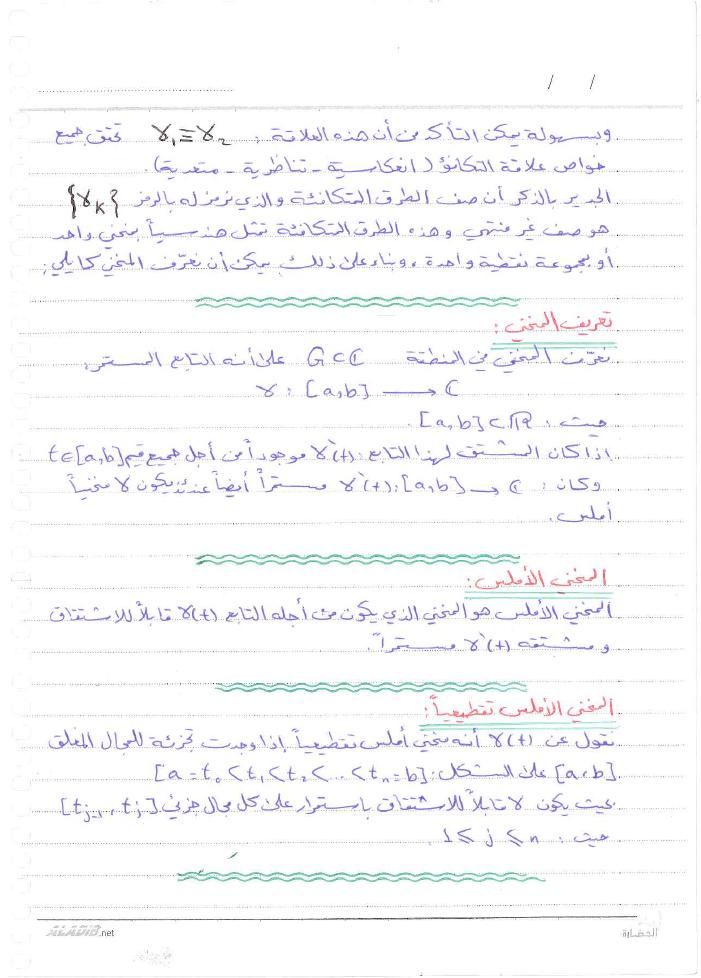 / /
وبسهولة يمكن التأكد من أن هذه العلاقة : γ₁ ≡ γ₂ تحقق جميع
خواص علاقة التكافؤ ( انعكاسية - تناظرية - متعدية ).
الجدير بالذكر أن صف الطرق المتكافئة والذي نرمز له بالرمز {γK}
هو صف غير منتهي وهذه الطرق المتكافئة تمثل هندسياً بمنحني واحد
أو بمجموعة نقطية واحدة ، وبناء على ذلك يمكن أن نعرّف المنحني كما يلي :
تعريف المنحني :
نعرّف المنحني في المنطقة G ⊂ ℂ على أنه التابع المستمر :
γ : [a,b] → ℂ
حيث : [a,b] ⊂ ℝ .
اذا كان المشتق لهذا التابع : γ`(t) موجوداً من أجل جميع قيم t∈[a,b]
وكان : γ`(t) : [a,b] → ℂ مستمراً أيضاً عندئذٍ يكون γ منحنياً
أملس .
المنحني الأملس :
المنحني الأملس هو المنحني الذي يكون من أجله التابع γ(t) قابلاً للاشتقاق
و مشتقه γ`(t) مستمراً .
المنحني الأملس تقطيعياً :
نقول عن γ(t) أنه منحني أملس تقطيعياً إذا وجدت تجزئة للمجال المغلق
[a,b] على الشكل : [a = t₀ < t₁ < t₂ < ... < tn = b]
بحيث يكون γ قابلاً للاشتقاق باستمرار على كل مجال جزئي [tj-1 , tj]
حيث : 1 ≤ j ≤ n
ALADIB.net
الحضارة